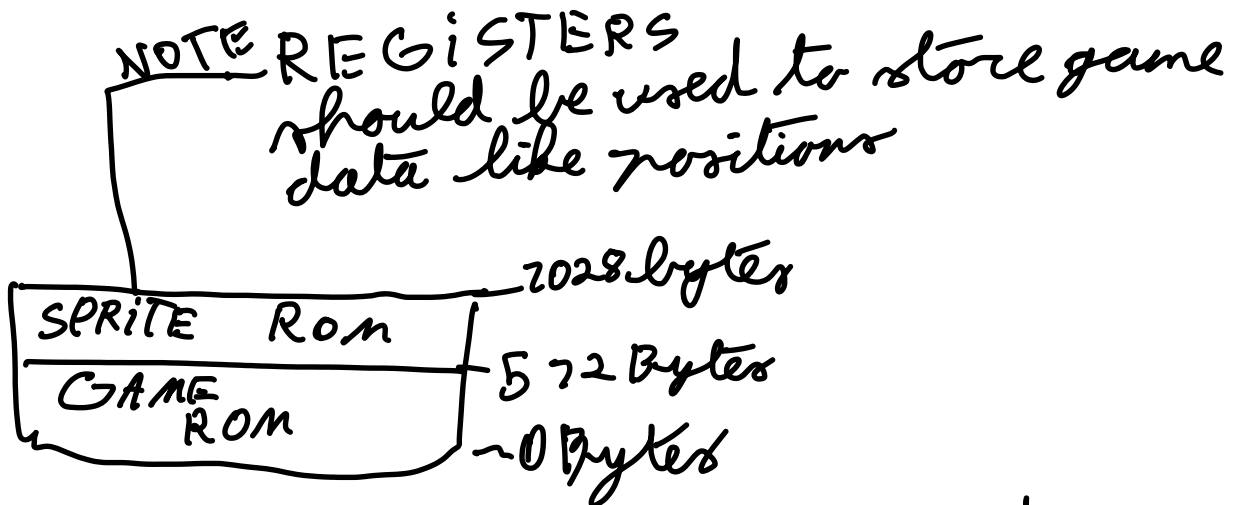 NOTE REGiSTERS
should be used to store game
data like positions
1028 bytes
SPRiTE ROM
512 Bytes
GAME
ROM
0 Bytes